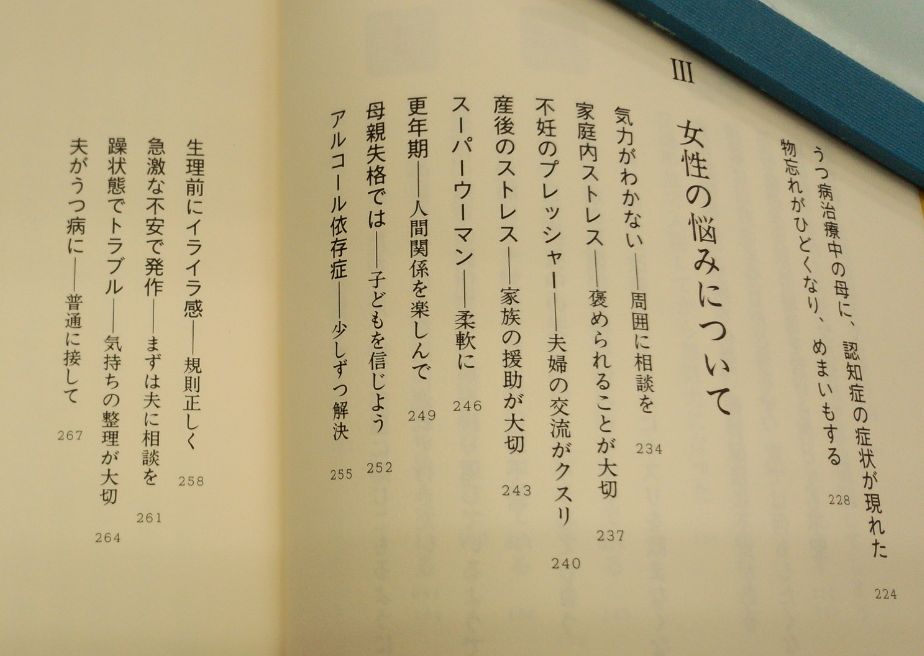 うつ病治療中の母に、認知症の症状が現れた 224
物忘れがひどくなり、めまいもする 228
III 女性の悩みについて
気力がわかない――周囲に相談を 234
家庭内ストレス――褒められることが大切 237
不妊のプレッシャー――夫婦の交流がクスリ 240
産後のストレス――家族の援助が大切 243
スーパーウーマン――柔軟に 246
更年期――人間関係を楽しんで 249
母親失格では――子どもを信じよう 252
アルコール依存症――少しずつ解決 255
生理前にイライラ感――規則正しく 258
急激な不安で発作――まずは夫に相談を 261
躁状態でトラブル――気持ちの整理が大切 264
夫がうつ病に――普通に接して 267